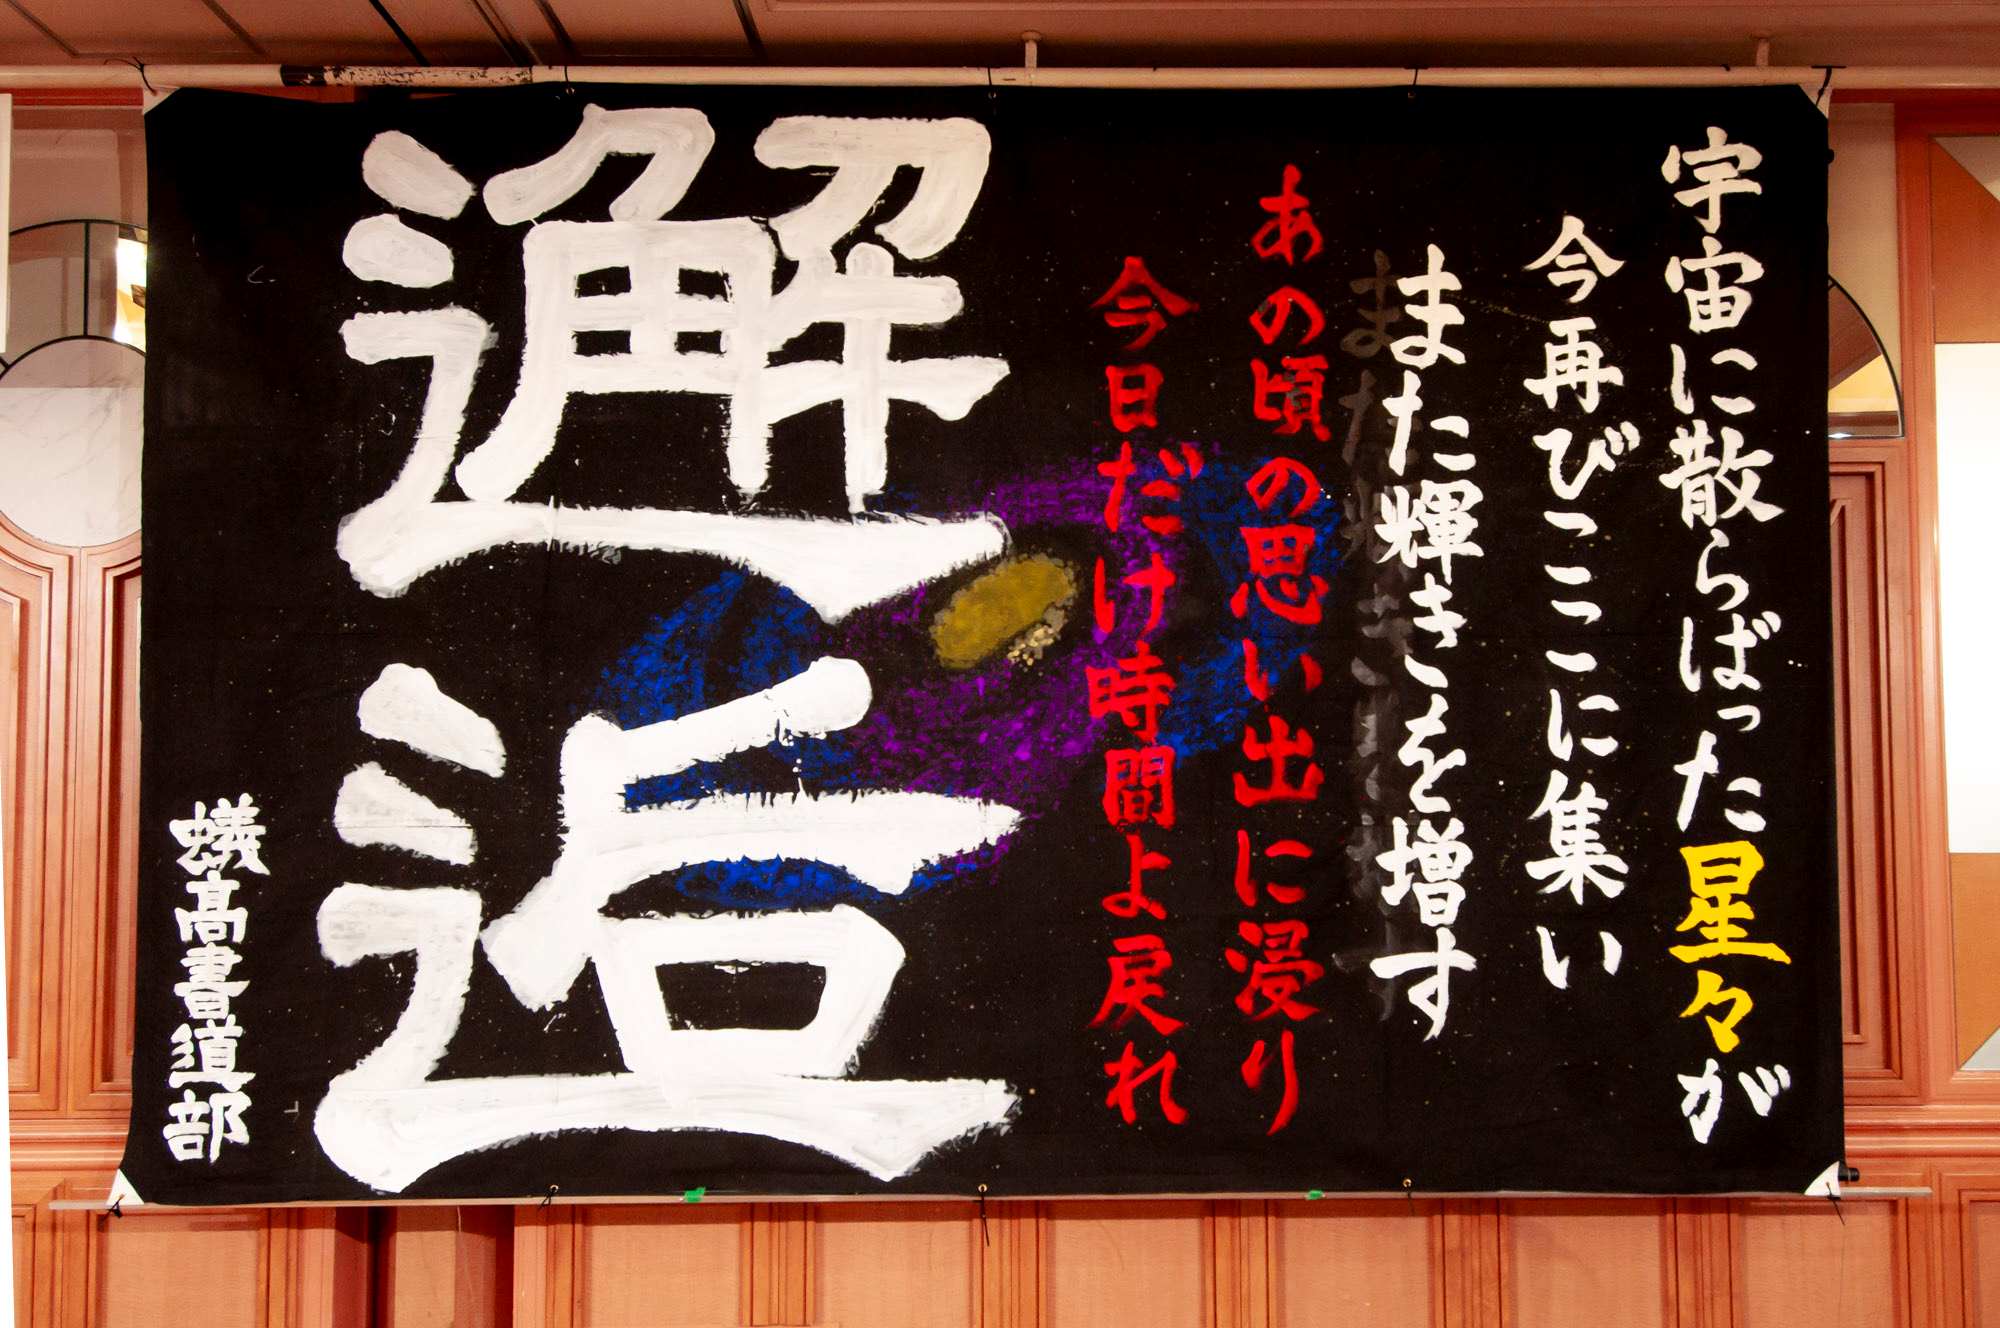 宇宙に散らばった星々が
今再びここに集い
また輝きを増す
あの頃の思い出に浸り
今日だけ時間よ戻れ
邂逅
蟻高書道部